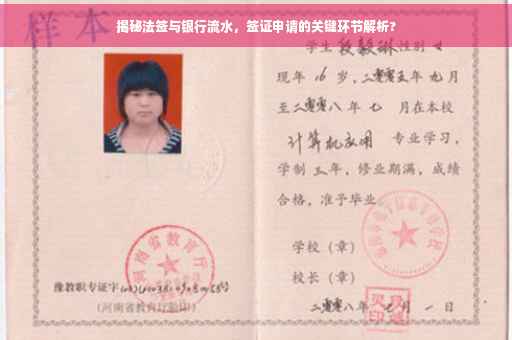 揭秘法签与银行流水，签证申请的关键环节解析?
样本
学生 段毅琳 性别 女
现年 16 岁，二零零五年 九月
至二零零八年 七 月在本校
计算机应用 专业学习，
学制 三 年，修业期满，成绩
合格，准予毕业
学校（章）
校长（章）
二零零八年 七月 一 日
河南省教育厅
豫教职专证字
（河南省教育厅验印）